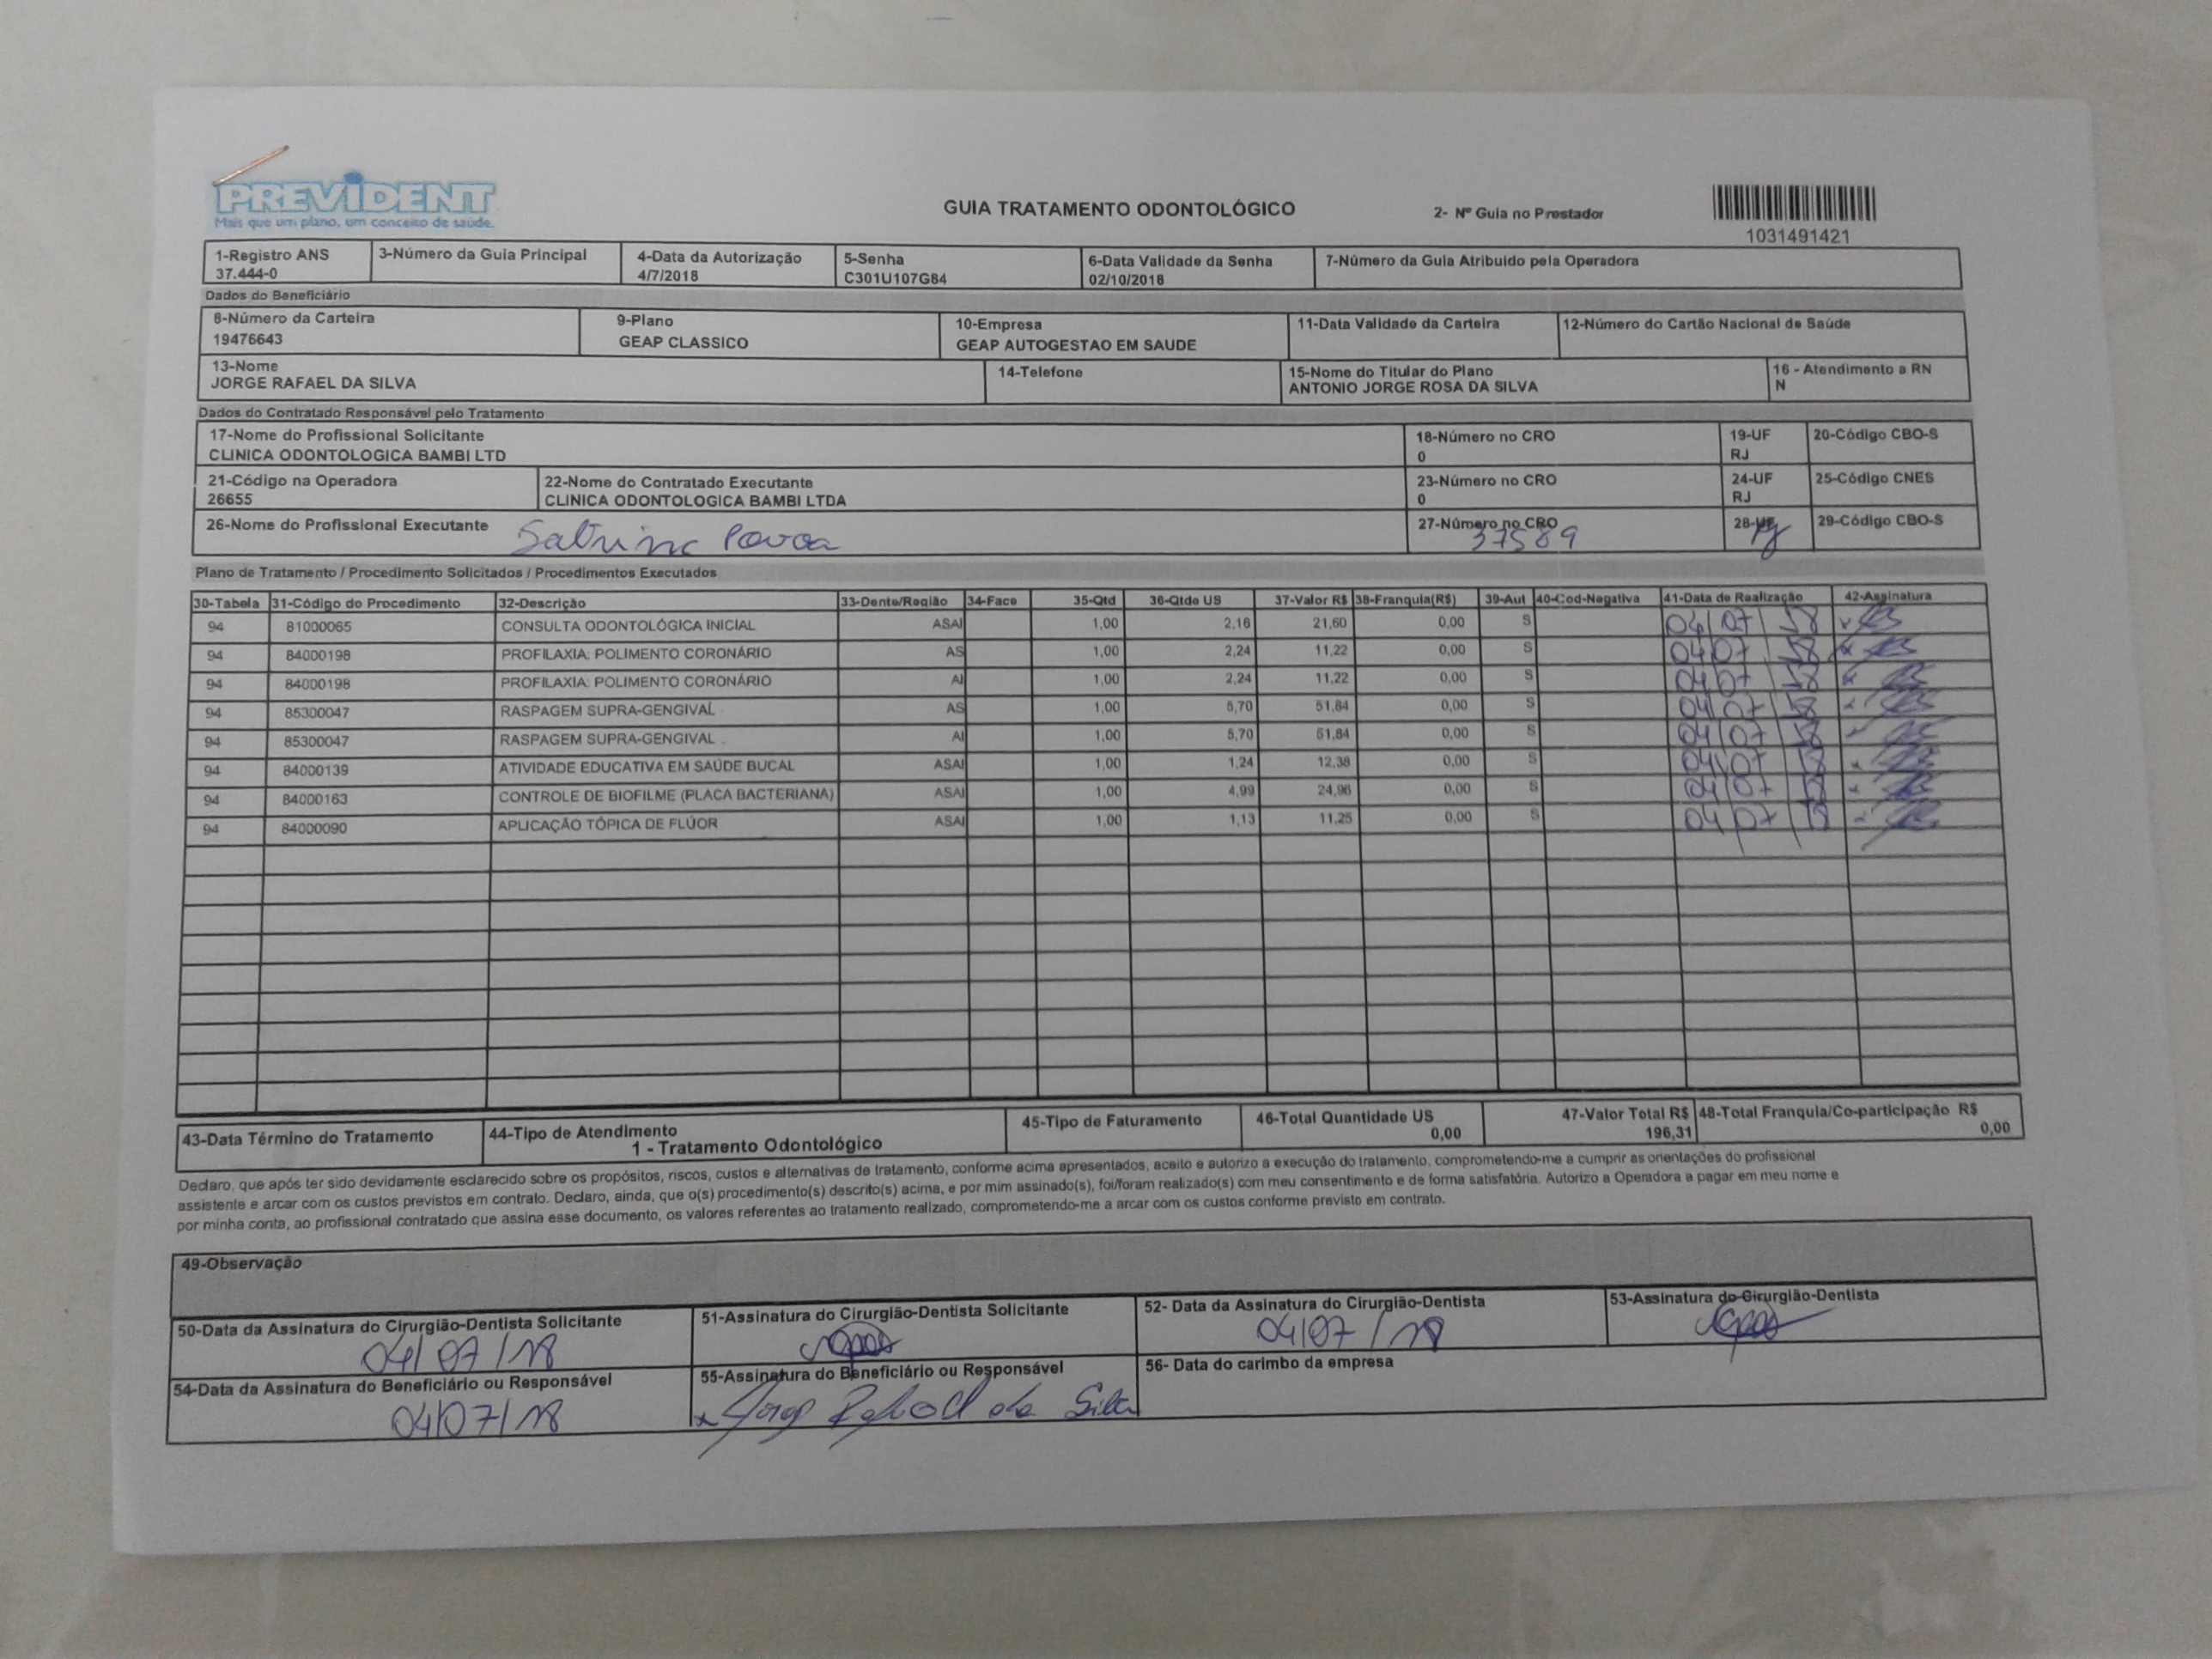 PREVIDENT
Mais que um plano, um conceito de saúde.
GUIA TRATAMENTO ODONTOLÓGICO
2- Nº Guia no Prestador
1031491421
1-Registro ANS 3-Número da Guia Principal 4-Data da Autorização 5-Senha 6-Data Validade da Senha 7-Número da Guia Atribuido pela Operadora
37.444-0 4/7/2018 C301U107G84 02/10/2018
Dados do Beneficiário
8-Número da Carteira 9-Plano 10-Empresa 11-Data Validade da Carteira 12-Número do Cartão Nacional de Saúde
19476643 GEAP CLASSICO GEAP AUTOGESTAO EM SAUDE
13-Nome 14-Telefone 15-Nome do Titular do Plano 16 - Atendimento a RN
JORGE RAFAEL DA SILVA ANTONIO JORGE ROSA DA SILVA N
Dados do Contratado Responsável pelo Tratamento
17-Nome do Profissional Solicitante 18-Número no CRO 19-UF 20-Código CBO-S
CLINICA ODONTOLOGICA BAMBI LTD 0 RJ
21-Código na Operadora 22-Nome do Contratado Executante 23-Número no CRO 24-UF 25-Código CNES
26655 CLINICA ODONTOLOGICA BAMBI LTDA 0 RJ
26-Nome do Profissional Executante Sabrina Povoa 27-Número no CRO 37589 28-UF RJ 29-Código CBO-S
Plano de Tratamento / Procedimento Solicitados / Procedimentos Executados
30-Tabela 31-Código do Procedimento 32-Descrição 33-Dente/Região 34-Face 35-Qtd 36-Qtde US 37-Valor R$ 38-Franquia(R$) 39-Aut 40-Cod-Negativa 41-Data de Realização 42-Assinatura
94 81000065 CONSULTA ODONTOLÓGICA INICIAL ASAI 1,00 2,16 21,60 0,00 S 04/07/18
94 84000198 PROFILAXIA: POLIMENTO CORONÁRIO AS 1,00 2,24 11,22 0,00 S 04/07/18
94 84000198 PROFILAXIA: POLIMENTO CORONÁRIO AI 1,00 2,24 11,22 0,00 S 04/07/18
94 85300047 RASPAGEM SUPRA-GENGIVAL AS 1,00 5,70 51,84 0,00 S 04/07/18
94 85300047 RASPAGEM SUPRA-GENGIVAL . AI 1,00 5,70 51,84 0,00 S 04/07/18
94 84000139 ATIVIDADE EDUCATIVA EM SAÚDE BUCAL ASAI 1,00 1,24 12,38 0,00 S 04/07/18
94 84000163 CONTROLE DE BIOFILME (PLACA BACTERIANA) ASAI 1,00 4,99 24,96 0,00 S 04/07/18
94 84000090 APLICAÇÃO TÓPICA DE FLÚOR ASAI 1,00 1,13 11,25 0,00 S 04/07/18
43-Data Término do Tratamento 44-Tipo de Atendimento 45-Tipo de Faturamento 46-Total Quantidade US 47-Valor Total R$ 48-Total Franquia/Co-participação R$
1 - Tratamento Odontológico 0,00 196,31 0,00
Declaro, que após ter sido devidamente esclarecido sobre os propósitos, riscos, custos e alternativas de tratamento, conforme acima apresentados, aceito e autorizo a execução do tratamento, comprometendo-me a cumprir as orientações do profissional
assistente e arcar com os custos previstos em contrato. Declaro, ainda, que o(s) procedimento(s) descrito(s) acima, e por mim assinado(s), foi/foram realizado(s) com meu consentimento e de forma satisfatória. Autorizo a Operadora a pagar em meu nome e
por minha conta, ao profissional contratado que assina esse documento, os valores referentes ao tratamento realizado, comprometendo-me a arcar com os custos conforme previsto em contrato.
49-Observação
50-Data da Assinatura do Cirurgião-Dentista Solicitante 51-Assinatura do Cirurgião-Dentista Solicitante 52- Data da Assinatura do Cirurgião-Dentista 53-Assinatura do Cirurgião-Dentista
04/07/18 04/07/18
54-Data da Assinatura do Beneficiário ou Responsável 55-Assinatura do Beneficiário ou Responsável 56- Data do carimbo da empresa
04/07/18 x Jorge Rafael da Silva